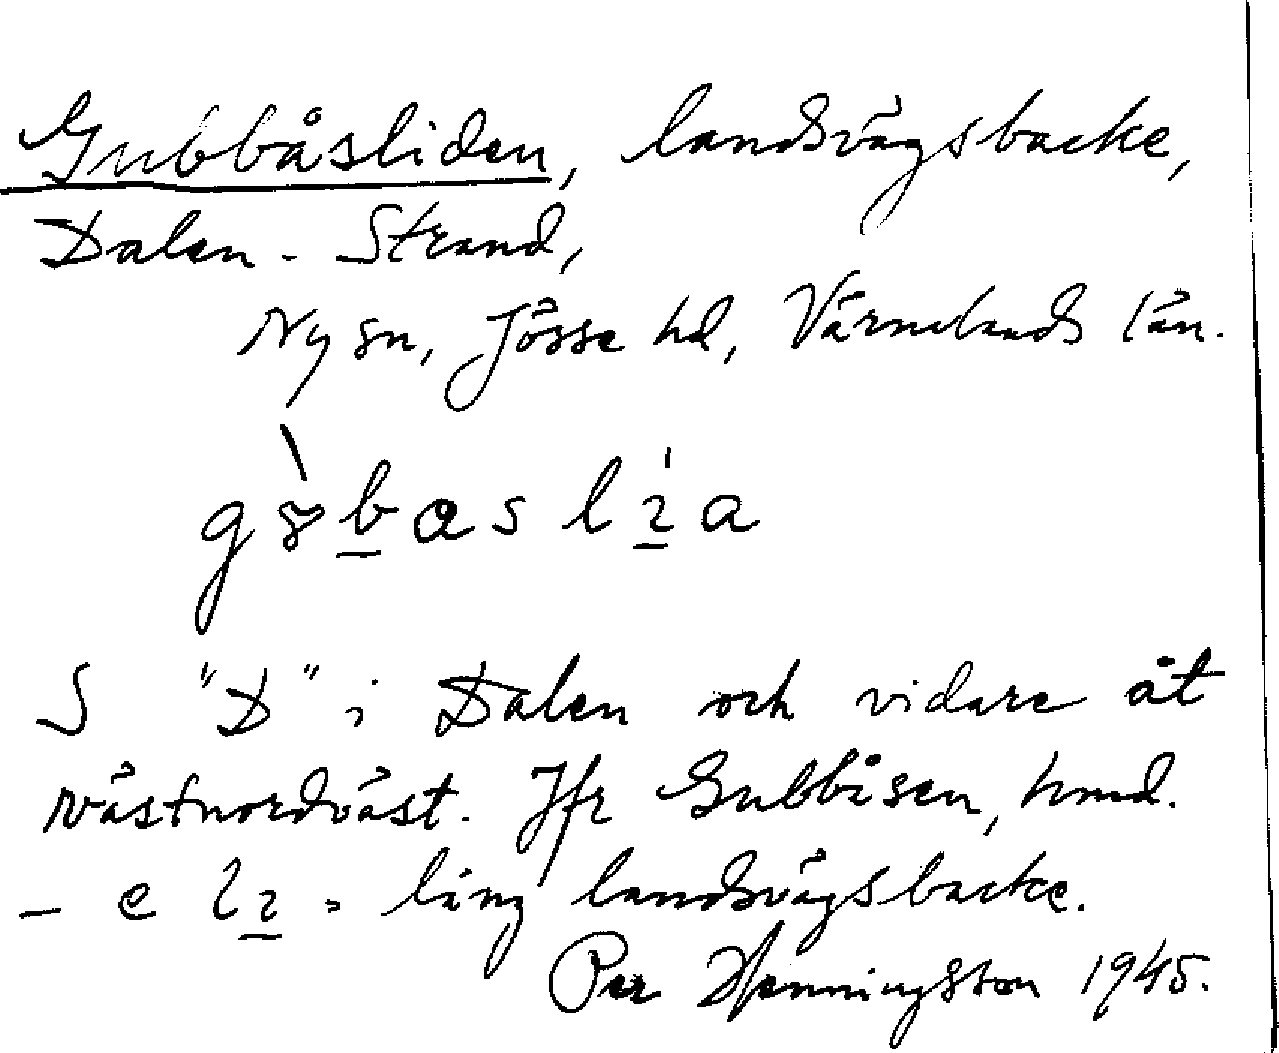 Gubbåsliden, landsvägsbacke,
Dalen - Strand,
Ny sn, Jösse hd, Värmlands län.
S "D" i Dalen och vidare åt
västnordväst. Jfr Gubbåsen, hmd.
lång landsvägsbacke.
Per Henningsson 1945.